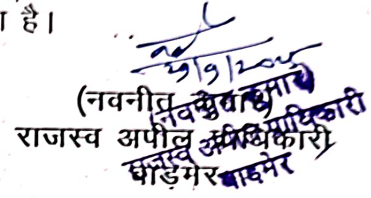 है।
(नवनीत कुमार)
राजस्व अपील प्राधिकारी
बाड़मेर
(नवनीत कुमार)
राजस्व अपील प्राधिकारी
बाडमेर